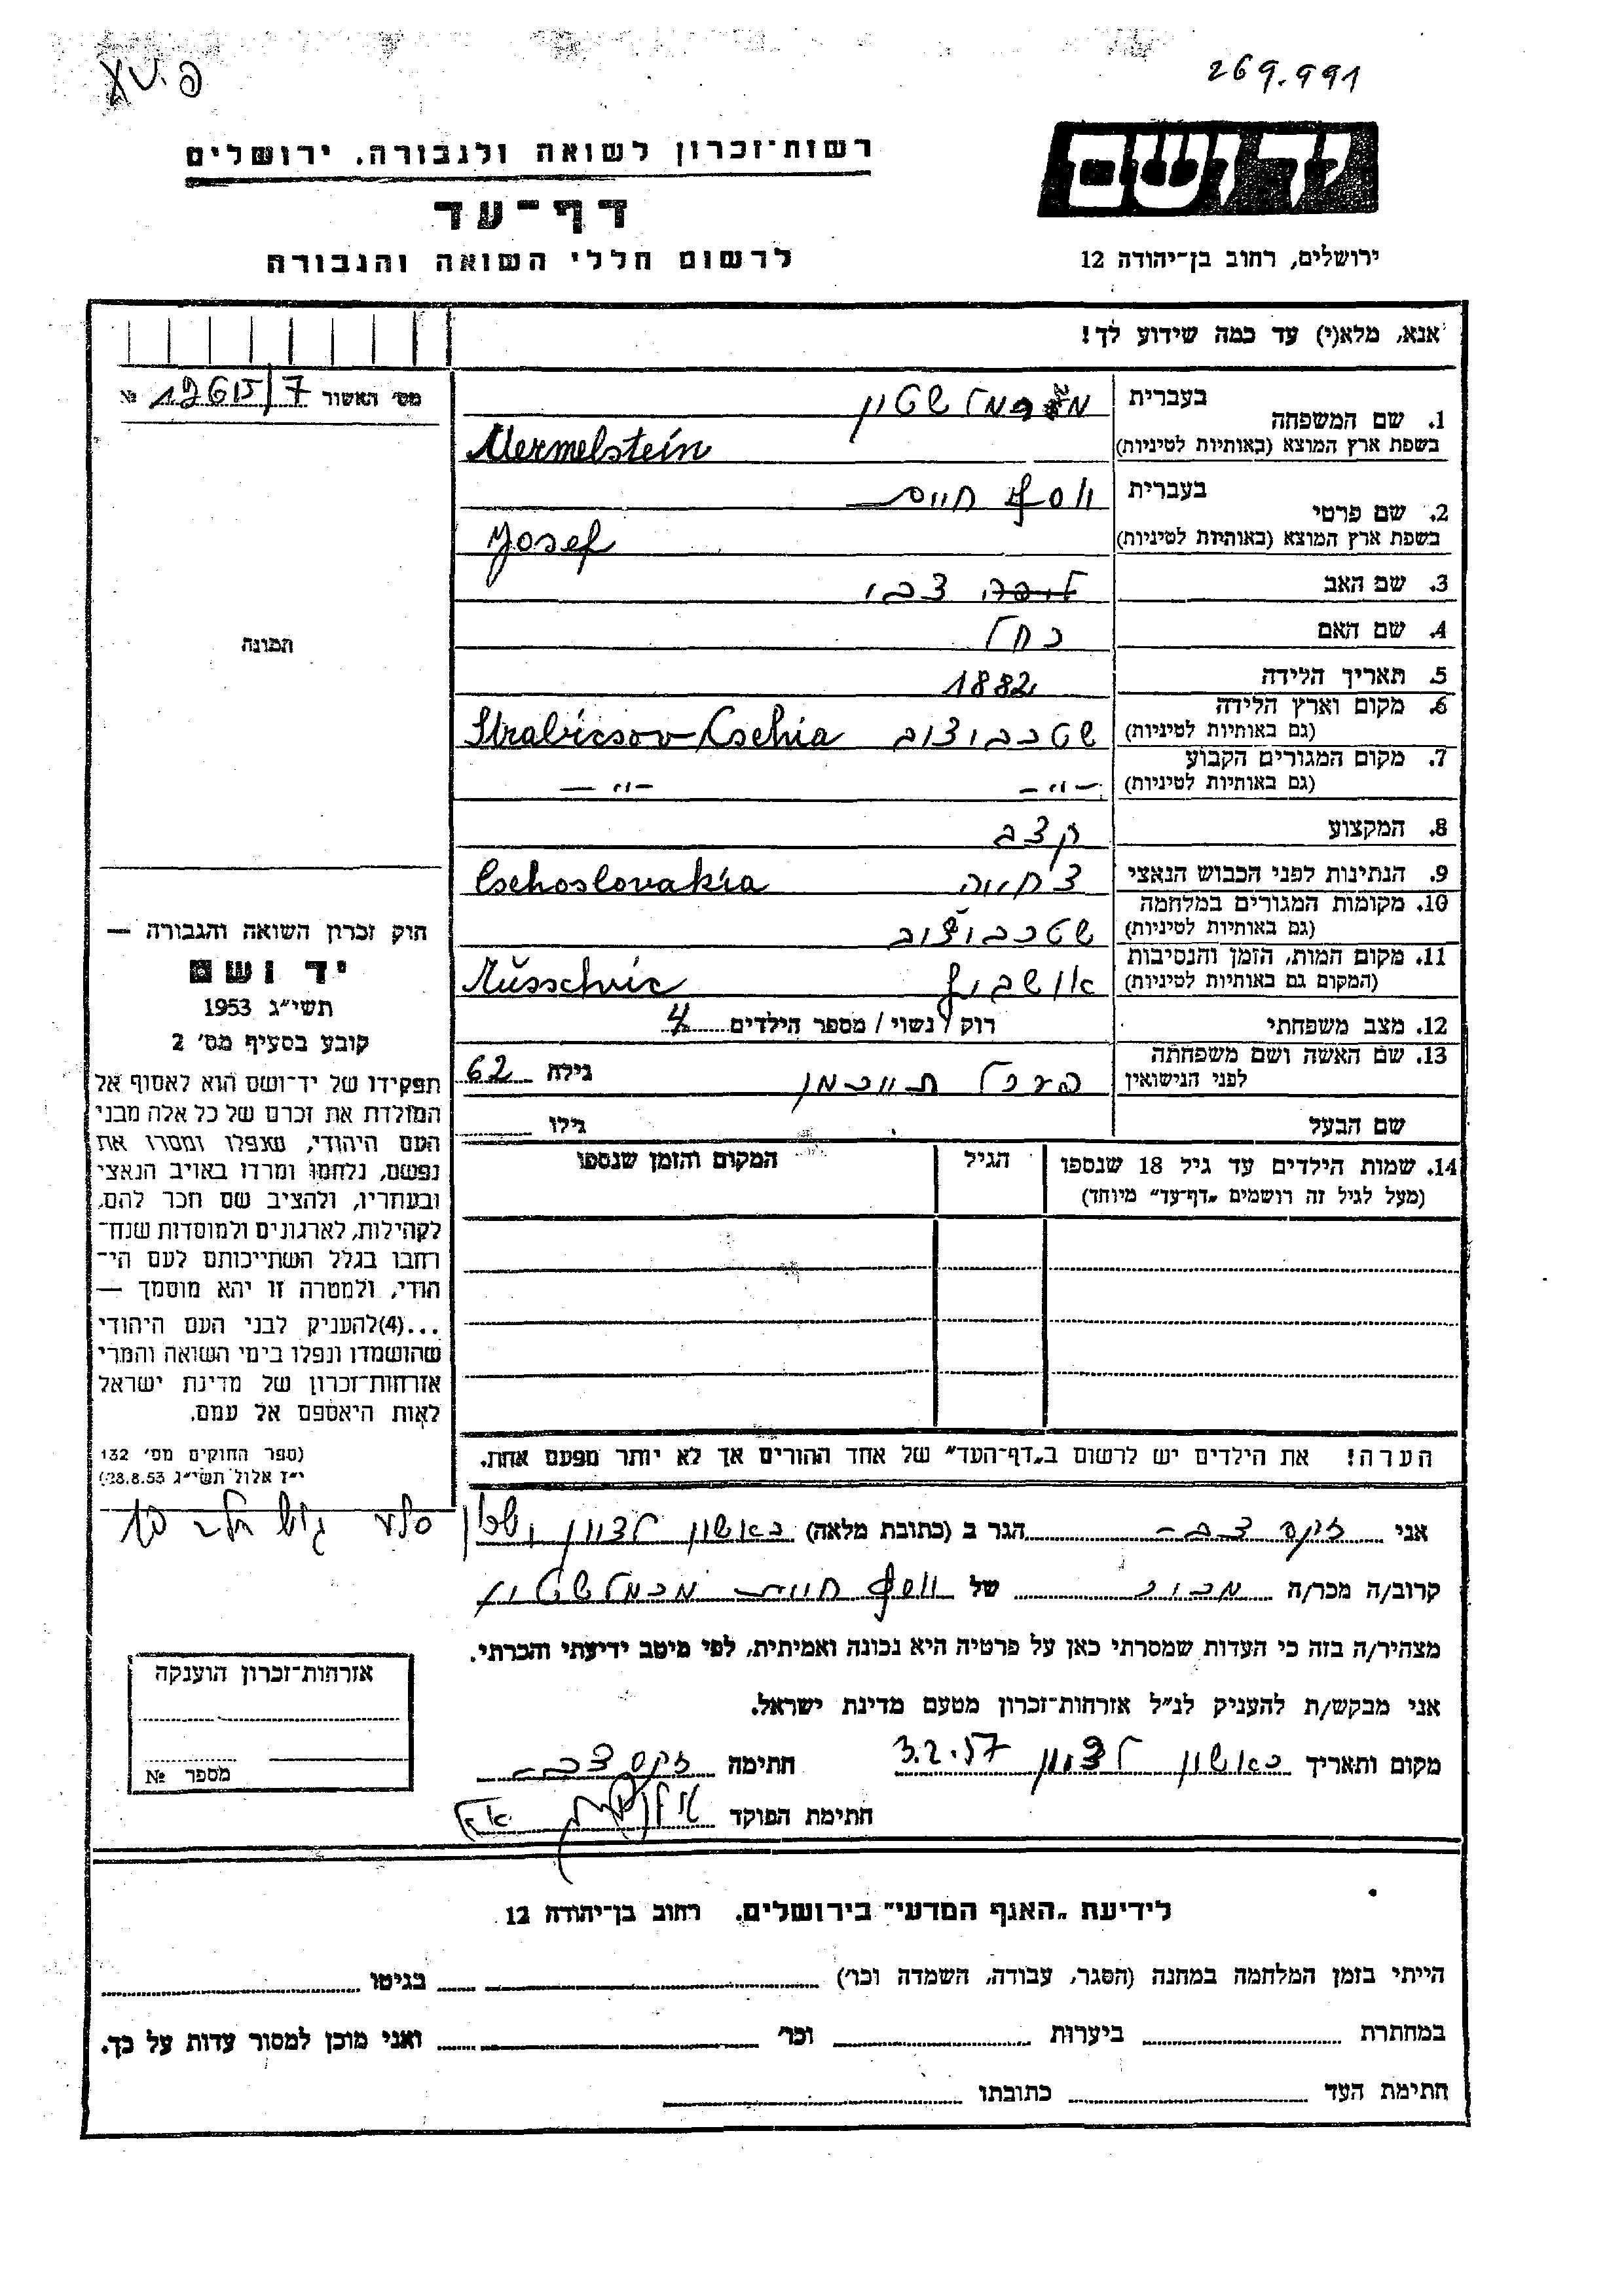 269.991
פ.שא
יד ושם
רשות־זכרון לשואה ולגבורה, ירושלים
דף־עד
לרשום חללי השואה והגבורה
ירושלים, רחוב בן־יהודה 12
אנא, מלא(י) עד כמה שידוע לך!
מס׳ האשור 12615/7 №
1. שם המשפחה
בעברית
בשפת ארץ המוצא (באותיות לטיניות)
Mermelstein
2. שם פרטי
בעברית יוסף חיים
בשפת ארץ המוצא (באותיות לטיניות)
Josef
3. שם האב צבי
4. שם האם רחל
5. תאריך הלידה 1882
6. מקום וארץ הלידה
(גם באותיות לטיניות)
שטרביצוב Strabicsov Cschia
7. מקום המגורים הקבוע
(גם באותיות לטיניות)
-״- -״-
8. המקצוע קצב
9. הנתינות לפני הכבוש הנאצי צ׳כיה Cschoslovakia
10. מקומות המגורים במלחמה
(גם באותיות לטיניות)
שטרביצוב
11. מקום המות, הזמן והנסיבות
(המקום גם באותיות לטיניות)
אושביץ Aüsschvic
12. מצב משפחתי רוק / נשוי / מספר הילדים 4
13. שם האשה ושם משפחתה
לפני הנישואין
פערל גילה 62
שם הבעל גילו
14. שמות הילדים עד גיל 18 שנספו
(מעל לגיל זה רושמים „דף־עד״ מיוחד)
הגיל
המקום והזמן שנספו
הערה! את הילדים יש לרשום ב„דף־העד״ של אחד ההורים אך לא יותר מפעם אחת.
תמונה
חוק זכרון השואה והגבורה —
יד ושם
תשי״ג 1953
קובע בסעיף מס׳ 2
תפקידו של יד־ושם הוא לאסוף אל
המולדת את זכרם של כל אלה מבני
העם היהודי, שנפלו ומסרו את
נפשם, נלחמו ומרדו באויב הנאצי
ובעוזריו, ולהציב שם וזכר להם,
לקהילות, לארגונים ולמוסדות שנח־
רבו בגלל השתייכותם לעם הי־
הודי, ולמטרה זו יהא מוסמך —
...(4)להעניק לבני העם היהודי
שהושמדו ונפלו בימי השואה והמרי
אזרחות־זכרון של מדינת ישראל
לאות היאספם אל עמם.
(ספר החוקים מס׳ 132
י״ז אלול תשי״ג 28.8.53)
אני זקס צבי הגר ב (כתובת מלאה) ראשון לציון
קרוב/ה מכר/ה של יוסף חיים מרמלשטין
מצהיר/ה בזה כי העדות שמסרתי כאן על פרטיה היא נכונה ואמיתית, לפי מיטב ידיעתי והכרתי.
אני מבקש/ת להעניק לנ״ל אזרחות־זכרון מטעם מדינת ישראל.
מקום ותאריך ראשון לציון 3.2.57 חתימה זקס צבי
חתימת הפוקד
אזרחות־זכרון הוענקה
מספר №
לידיעת „האגף המדעי״ בירושלים, רחוב בן־יהודה 12
הייתי בזמן המלחמה במחנה (הסגר, עבודה, השמדה וכו׳) בגיטו
במחתרת ביערות וכו׳ ואני מוכן למסור עדות על כך.
חתימת העד כתובתו